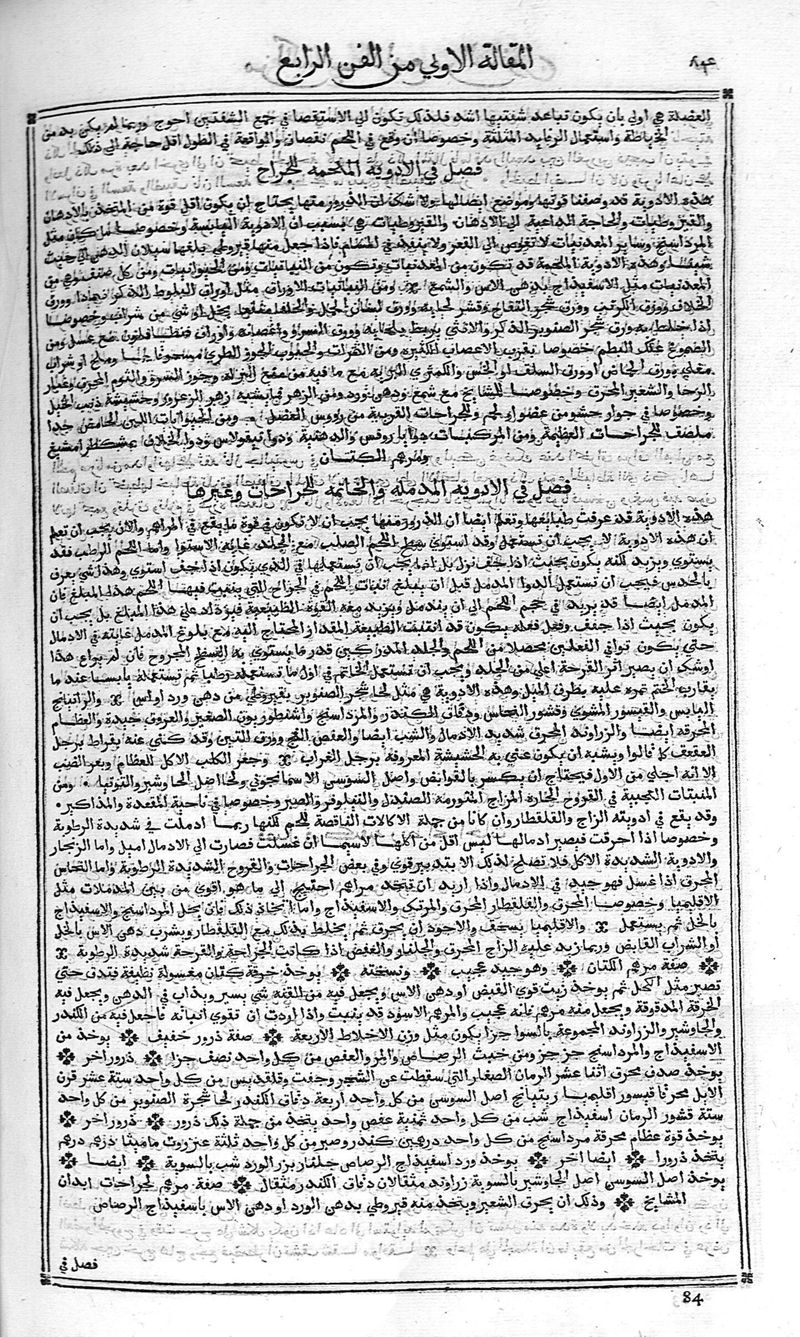 المقالة الاولي من الفن الرابع
العضلة هي اولي بان يكون تباعد شفتيها اشد فلذلك تكون الي الاستقصا في جمع الشفتين احوج وربما لم يكن بد من
الخياطة واستعمال الرفايد المثلثة وخصوصا ان وقع في اللحم نقصان والواقعة في الطول اقل حاجة الي ذلك
فصل في الادوية الملحمة للجراح
هذه الادوية قد وصفنا قوتها وموضع ايصالها ولا شك ان الذرور منها يحتاج ان يكون اقل قوة من المتخذ بالادهان
والقيروطيات والحاجة الداعية الي الادهان والقيروطيات هي بسبب ان الادوية اليابسة وخصوصا ما كان مثل
المرداسنج وساير المعدنيات لا تغوص الي القعر ولا ينفذ في المسام فاذا جعل منها قيروطي بلغها سيلان الدهن الي حيث
شيتها وهذه الادوية الملحمة قد تكون من المعدنيات وتكون من النباتيات ومن الحيوانيات ومن كل صنف
المعدنيات مثل الاسفيذاج بدهن الاس والشمع ومن النباتيات الاوراق مثل اوراق البلوط
الخلاف وورق الكرنب وورق شجر التفاح وقشر لحايه وورق لسان الحمل
ورق شجر الصنوبر الذكر والانثي يربط بلحايه وورق السرو واغصانه واوراق
الصموغ علك البطم خصوصا بقرب الاعصاب الكثيرة ومن الثمرات
الرحا والشعير المحرق وخصوصا للمشايخ مع شمع ودهن ورد ومن الزهر
وخصوصا في جوار حشو من عضو او لحم وللجراحات القريبة من رووس العضل ومن الحيوانات اللبن الحامض جدا
ملصق للجراحات العظيمة ومن المركبات
ومرهم الكتان
فصل في الادوية المدملة والخاتمة للجراحات وغيرها
هذه الادوية قد عرفت طبايعها وتعلم ايضا ان الذرور منها يجب ان لا تكون في قوة ما يقع في المراهم والان يجب ان تعلم
ان هذه الادوية لا يجب ان تستعمل وقد استوي سطح اللحم الصلب مع الجلد غاية الاستوا واما اللحم الرطب فقد
يستوي ويزيد لكنه يكون بحيث اذا جف نزل بل انما يجب ان يستعملها في الذي يكون اذا جف استوي وهذا شي يعرف
بالحدس فيجب ان تستعمل الدوا المدمل قبل ان يبلغ انبات اللحم في الجراح التي ينبت فيها اللحم هذا المبلغ فان
المدمل ايضا قد يزيد في حجم اللحم الي ان يندمل ويزيد معه القوة الطبيعية فيزداد علي هذا المبلغ بل يجب ان
يكون بحيث اذا جفف وفعل فعله يكون قد انبتت الطبيعة المقدار المحتاج اليه مع بلوغ المدمل غايته في الادمال
حتي يكون توافي الفعلين محصلا من اللحم والجلد المدركين قدر ما يستوي به السطح المجروح فان لم يراع هذا
اوشك ان يصير اثر القرحة اعلي من الجلد ويجب ان تستعمل الخاتم في اول ما تستعمله رطبا ثم تستعمله يابسا عند ما
يقارب الختم تمره عليه بطرف الميل وهذه الادوية هي مثل لحا شجر الصنوبر بقيروطي من دهن ورد او اس والراتينج
اليابس والقيسور المشوي وقشور النحاس ودقاق الكندر والمرداسنج وقنطوريون الصغير والعروق جيدة والعظام
المحرقة ايضا والزراوند المحرق شديد الادمال والشب ايضا والعفص الفج وورق التين وقد كني عنه بقراط برجل
العقعق كما قالوا ويشبه ان يكون عني به الحشيشة المعروفة برجل الغراب وجعر الكلب الاكل للعظام وبعر الضب
الا انه اجلي من الاول فيحتاج ان يكسر بالقوابض واصل السوسن الاسمانجوني ولحا اصل الجاوشير والتوتيا ومن
المنبتات العجيبة في القروح الحارة المزاج المتورمة الصندل والنيلوفر والصبر وخصوصا في ناحية المقعدة والمذاكير
وقد يقع في ادويته الزاج والقلقطار وان كانا من جملة الاكالات الناقصة للحم لكنها ربما ادملت في شديدة الرطوبة
وخصوصا اذا احرقت فيصير ادمالها ليس اقل من اكلها لا سيما ان غسلت فصارت الي الادمال اميل واما الزنجار
والادوية الشديدة الاكل فلا تصلح لذلك الا بتدبير قوي وفي بعض الجراحات والقروح الشديدة الرطوبة واما النحاس
المحرق اذا غسل فهو جيد في الادمال واذا اريد ان تتخذ مراهم احتيج الي ما هو اقوي من بنبي المدملات مثل
الاقليميا وخصوصا المحرق والقلقطار المحرق والمرتك والاسفيذاج واما اتخاذ ذلك فان يحل المرداسنج والاسفيذاج
بالخل ثم يستعمل والاقليميا يسحق والاجود ان يحرق ثم يخلط بذلك مع القلقطار ويشرب دهن الاس بالخل
او الشراب القابض وربما زيد عليه الزاج المحرق والجلنار والعفص اذا كانت الجراحة والقرحة شديدة الرطوبة
صفة مرهم الكتان وهو جيد عجيب ونسخته يوخذ خرقة كتان مغسولة نظيفة فتدق حتي
تصير مثل الكحل ثم يوخذ زيت قوي القبض او دهن الاس ويجعل فيه من القنة شي يسير ويذاب في الدهن ويجعل فيه
الخرقة المدقوقة ويجعل منه مرهم فانه عجيب والمرهم الاسود قد ينبت واذا اردت ان تقوي انباته فاجعل فيه من الكندر
والجاوشير والزراوند المجموعة بالسوا جزا يكون مثل وزن الاخلاط الاربعة صفة ذرور خفيف يوخذ من
الاسفيذاج والمرداسنج جز جز ومن خبث الرصاص والمر والعفص من كل واحد نصف جزا ذرور اخر
يوخذ صدف محرق اثنا عشر الرمان الصغار التي سقطت عن الشجر وجفت وقلقديس من كل واحد ستة عشر قرن
الايل محرقا قيسور اقليميا ريتيانج اصل السوسن من كل واحد اربعة دقاق الكندر لحا شجرة الصنوبر من كل واحد
ستة قشور الرمان اسفيذاج شب من كل واحد ثمنية عفص واحد يتخذ من جملة ذلك ذرور ذرور اخر
يوخذ قوة عظام محرقة مرداسنج من كل واحد درهمين كندر وصبر من كل واحد ثلثة عنزروت ماميثا درهم درهم
يتخذ ذرورا ايضا اخر يوخذ ورد اسفيذاج الرصاص جلنار بزر الورد شب بالسوية ايضا
يوخذ اصل السوسن اصل الجاوشير بالسوية زراوند مثقالان دقاق الكندر مثقال صفة مرهم لجراحات ابدان
المشايخ وذلك ان يحرق الشعير ويتخذ منه قيروطي بدهن الورد او دهن الاس باسفيذاج الرصاص
فصل في
84